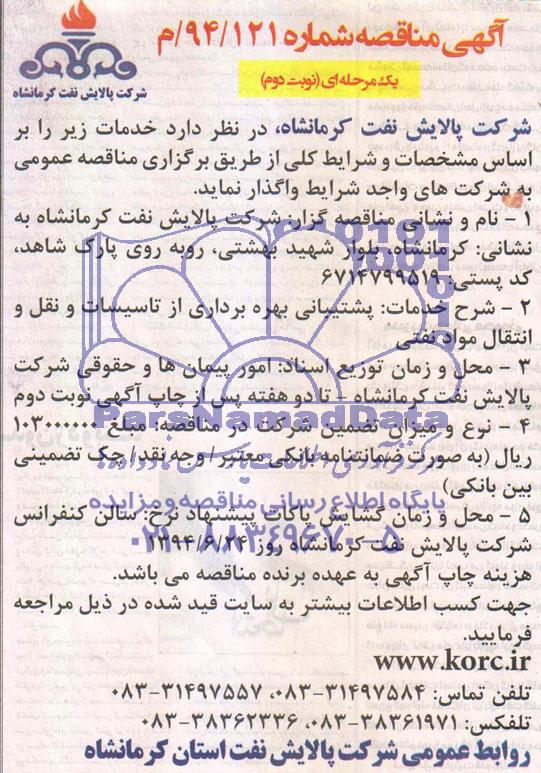 آگهی مناقصه شماره ۹۴/۱۲۱/م
یک مرحله ای (نوبت دوم)
شرکت پالایش نفت کرمانشاه
شرکت پالایش نفت کرمانشاه، در نظر دارد خدمات زیر را بر
اساس مشخصات و شرایط کلی از طریق برگزاری مناقصه عمومی
به شرکت های واجد شرایط واگذار نماید.
۱- نام و نشانی مناقصه گزار: شرکت پالایش نفت کرمانشاه به
نشانی: کرمانشاه، بلوار شهید بهشتی، روبه روی پارک شاهد،
کد پستی: ۶۷۱۴۷۹۹۵۱۹
۲- شرح خدمات: پشتیبانی بهره برداری از تاسیسات و نقل و
انتقال مواد نفتی
۳- محل و زمان توزیع اسناد: امور پیمان ها و حقوقی شرکت
پالایش نفت کرمانشاه - تا دو هفته پس از چاپ آگهی نوبت دوم
۴- نوع و میزان تضمین شرکت در مناقصه: مبلغ ۱۰۳۰۰۰۰۰۰
ریال (به صورت ضمانتنامه بانکی معتبر/ وجه نقد/ چک تضمینی
بین بانکی)
۵- محل و زمان گشایش پاکات پیشنهاد نرخ: سالن کنفرانس
شرکت پالایش نفت کرمانشاه روز ۱۳۹۴/۶/۲۴
هزینه چاپ آگهی به عهده برنده مناقصه می باشد.
جهت کسب اطلاعات بیشتر به سایت قید شده در ذیل مراجعه
فرمایید.
www.korc.ir
تلفن تماس: ۳۱۴۹۷۵۸۴-۰۸۳، ۳۱۴۹۷۵۵۷-۰۸۳
تلفکس: ۳۸۳۶۱۹۷۱-۰۸۳، ۳۸۳۶۲۳۳۶-۰۸۳
روابط عمومی شرکت پالایش نفت استان کرمانشاه
ParsNamadData
پایگاه اطلاع رسانی مناقصه و مزایده
۰۲۱-۸۸۳۴۹۶۷۰-۵